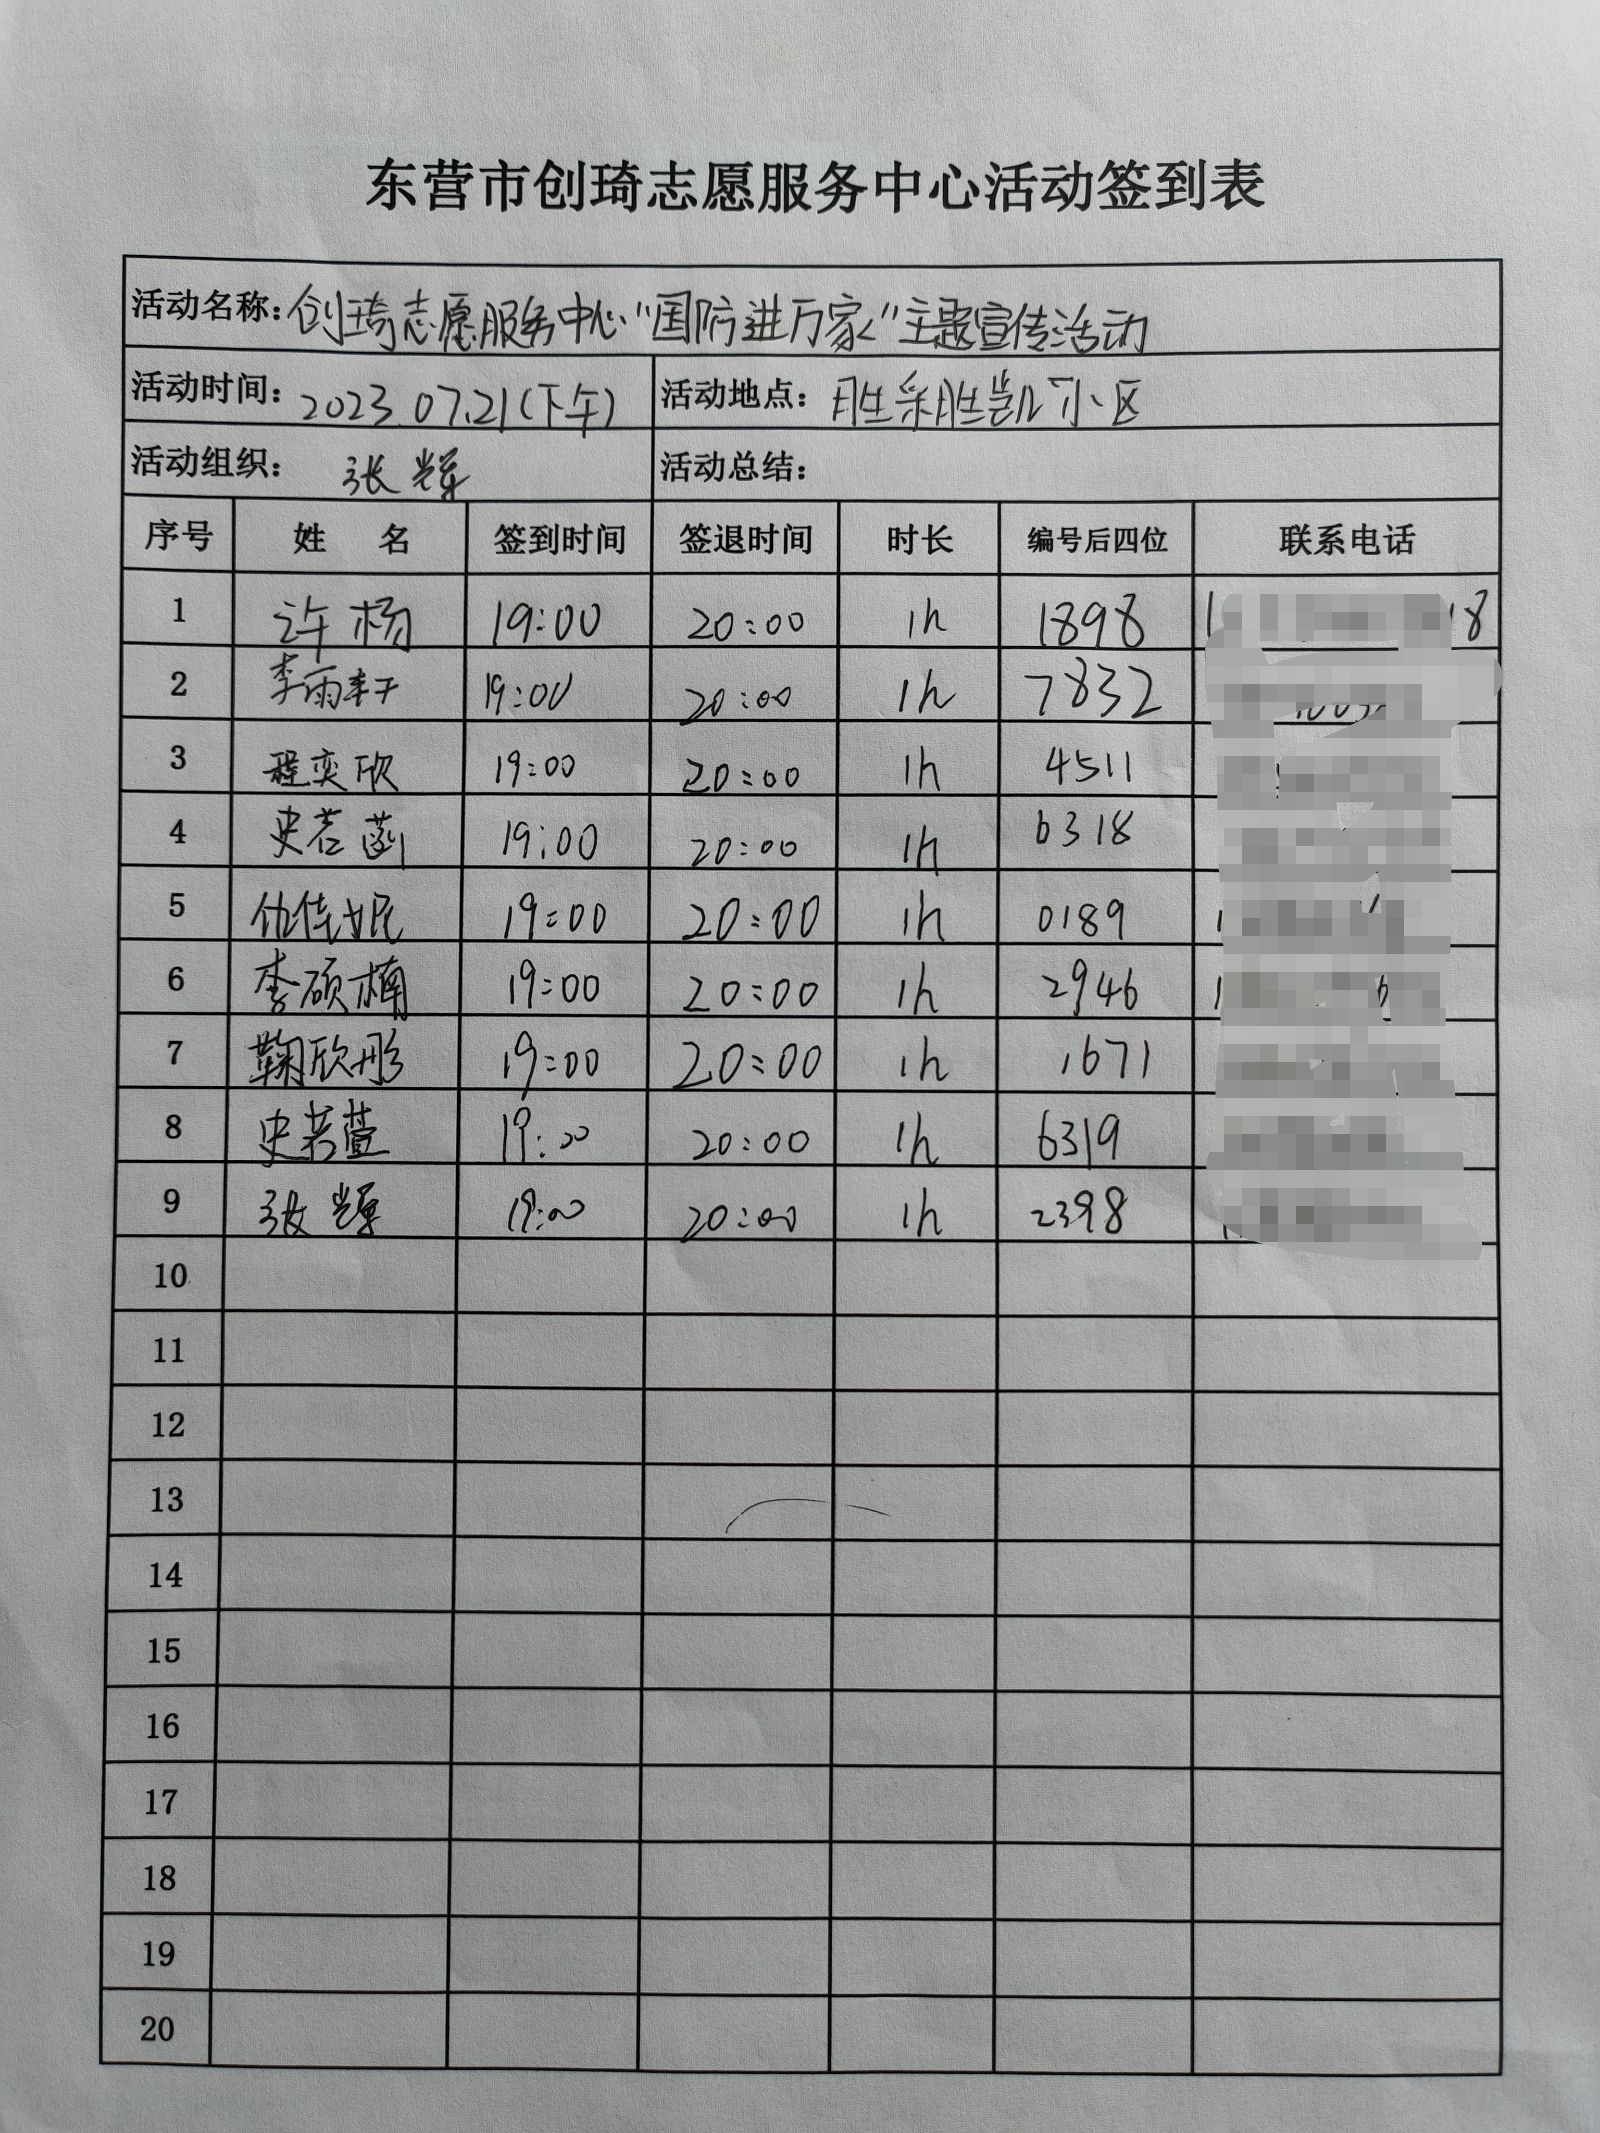 东营市创琦志愿服务中心活动签到表
活动名称：创琦志愿服务中心“国防进万家”主题宣传活动
活动时间：2023.07.21(下午) 活动地点：胜采胜凯小区
活动组织： 张辉 活动总结：
序号 姓 名 签到时间 签退时间 时长 编号后四位 联系电话
1 许杨 19:00 20:00 1h 1898
2 李雨轩 19:00 20:00 1h 7832
3 程奕欣 19:00 20:00 1h 4511
4 史若菡 19:00 20:00 1h 6318
5 仇佳妮 19:00 20:00 1h 0189
6 李硕楠 19:00 20:00 1h 2946
7 鞠欣彤 19:00 20:00 1h 1671
8 史若萱 19:00 20:00 1h 6319
9 张辉 19:00 20:00 1h 2398
10
11
12
13
14
15
16
17
18
19
20